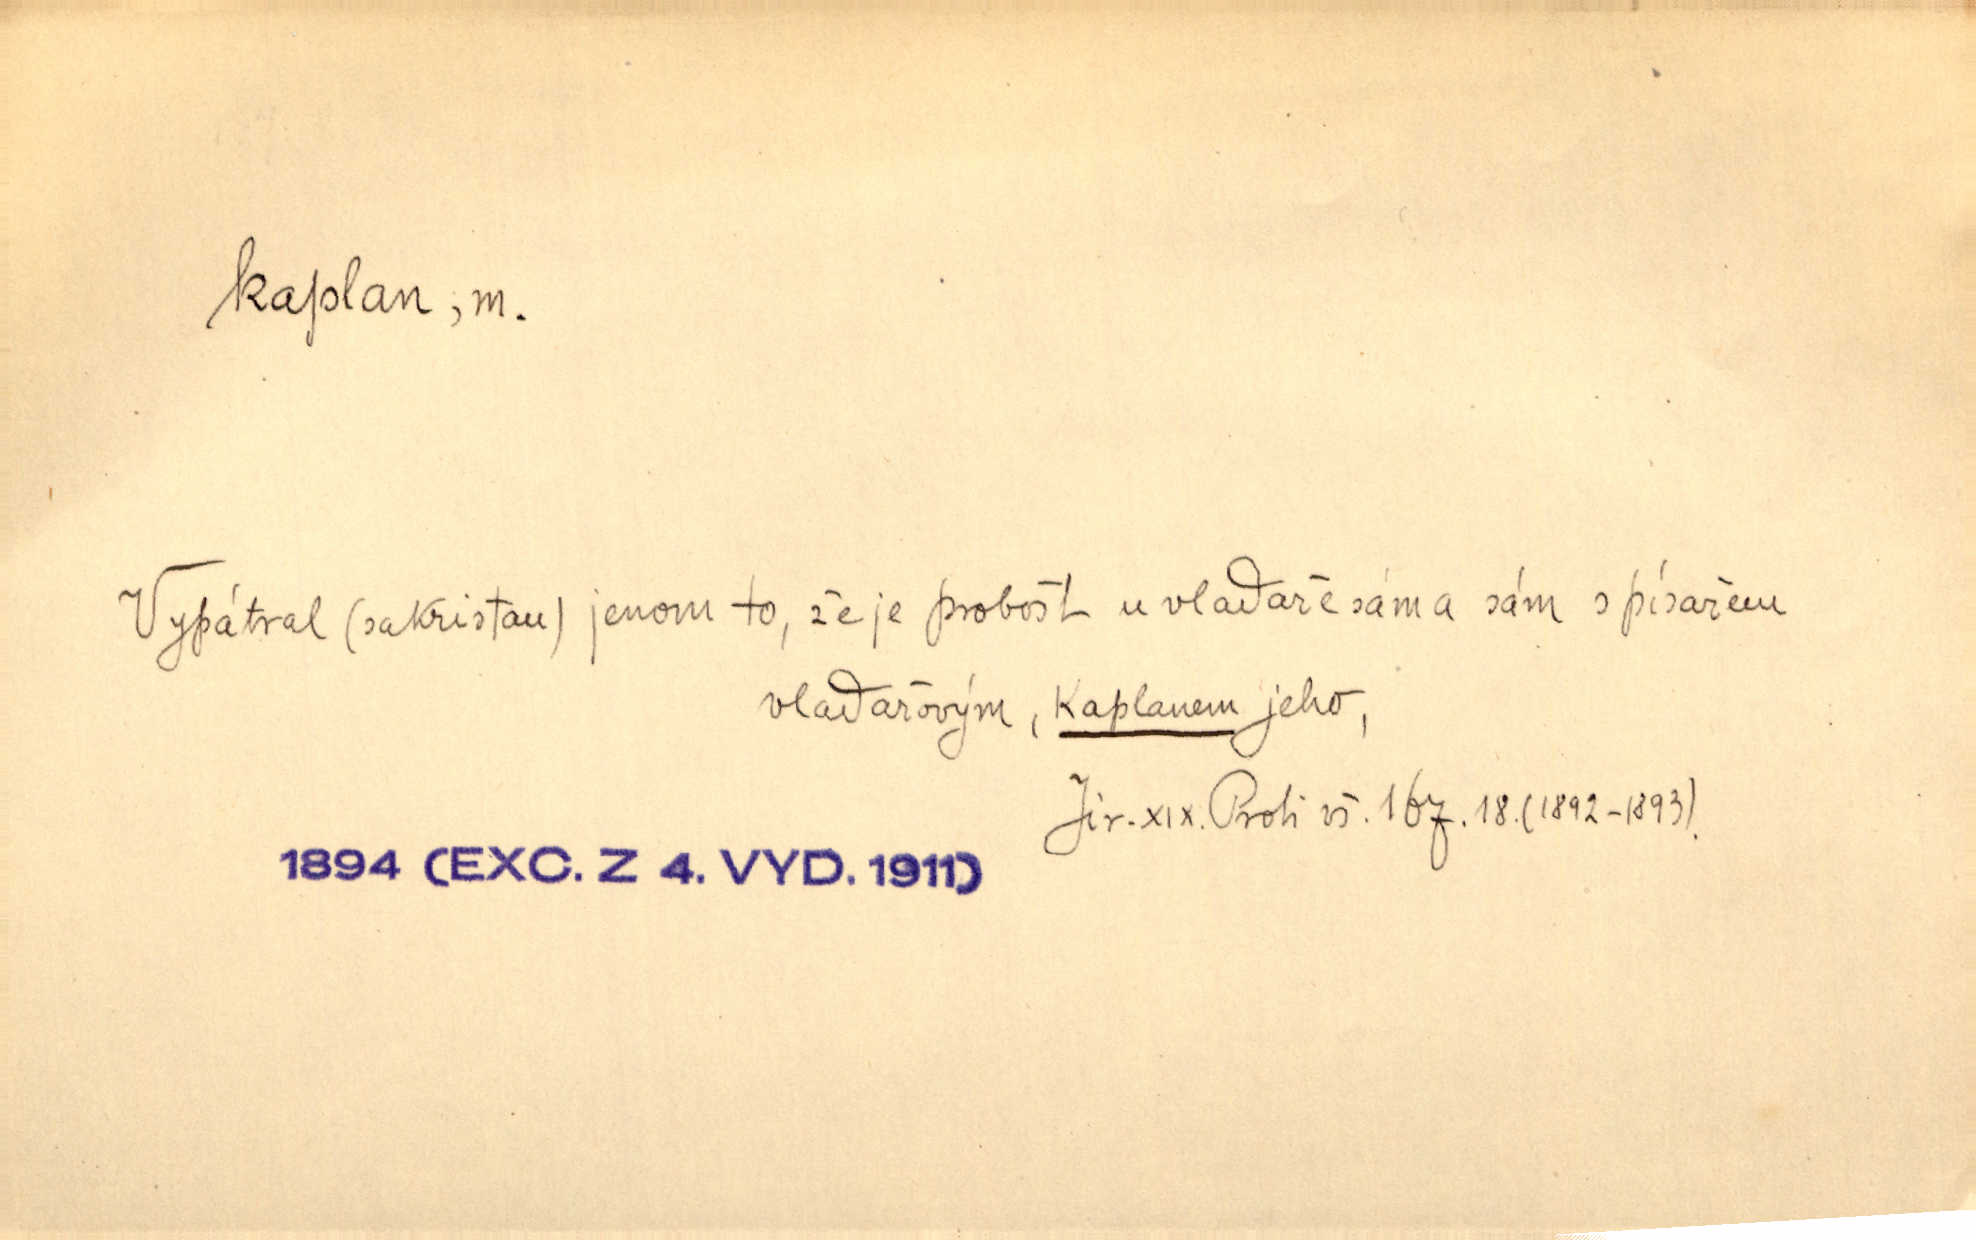 kaplan, m.
Vypátral (sakristan) jenom to, že je probošt u vladaře sám a sám s písařem
vladařovým, kaplanem jeho,
Jir. XIX. Proti vš. 167. 18. (1892-1893).
1894 (EXC. Z 4. VYD. 1911)